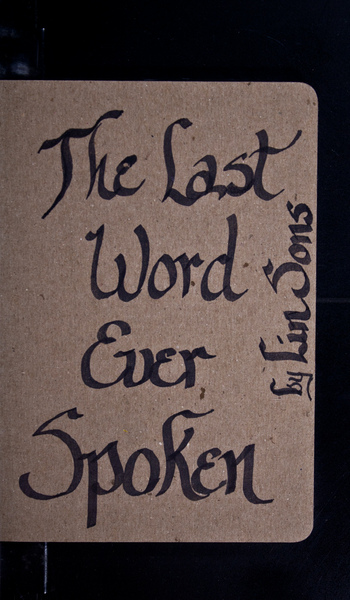 The Last
Word
Ever
Spoken
by Lin Sons